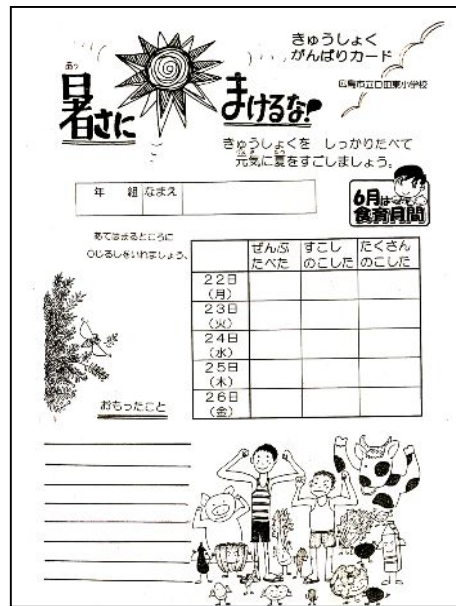 きゅうしょく
がんばりカード
広島市立口田東小学校
あつ
暑さに まけるな!
きゅうしょくを しっかりたべて
元気に夏をすごしましょう。
年 組 なまえ
6月は
食育月間
あてはまるところに
○じるしをいれましょう。
ぜんぶ たべた すこし のこした たくさん のこした
22日
(月)
23日
(火)
24日
(水)
25日
(木)
26日
(金)
おもったこと